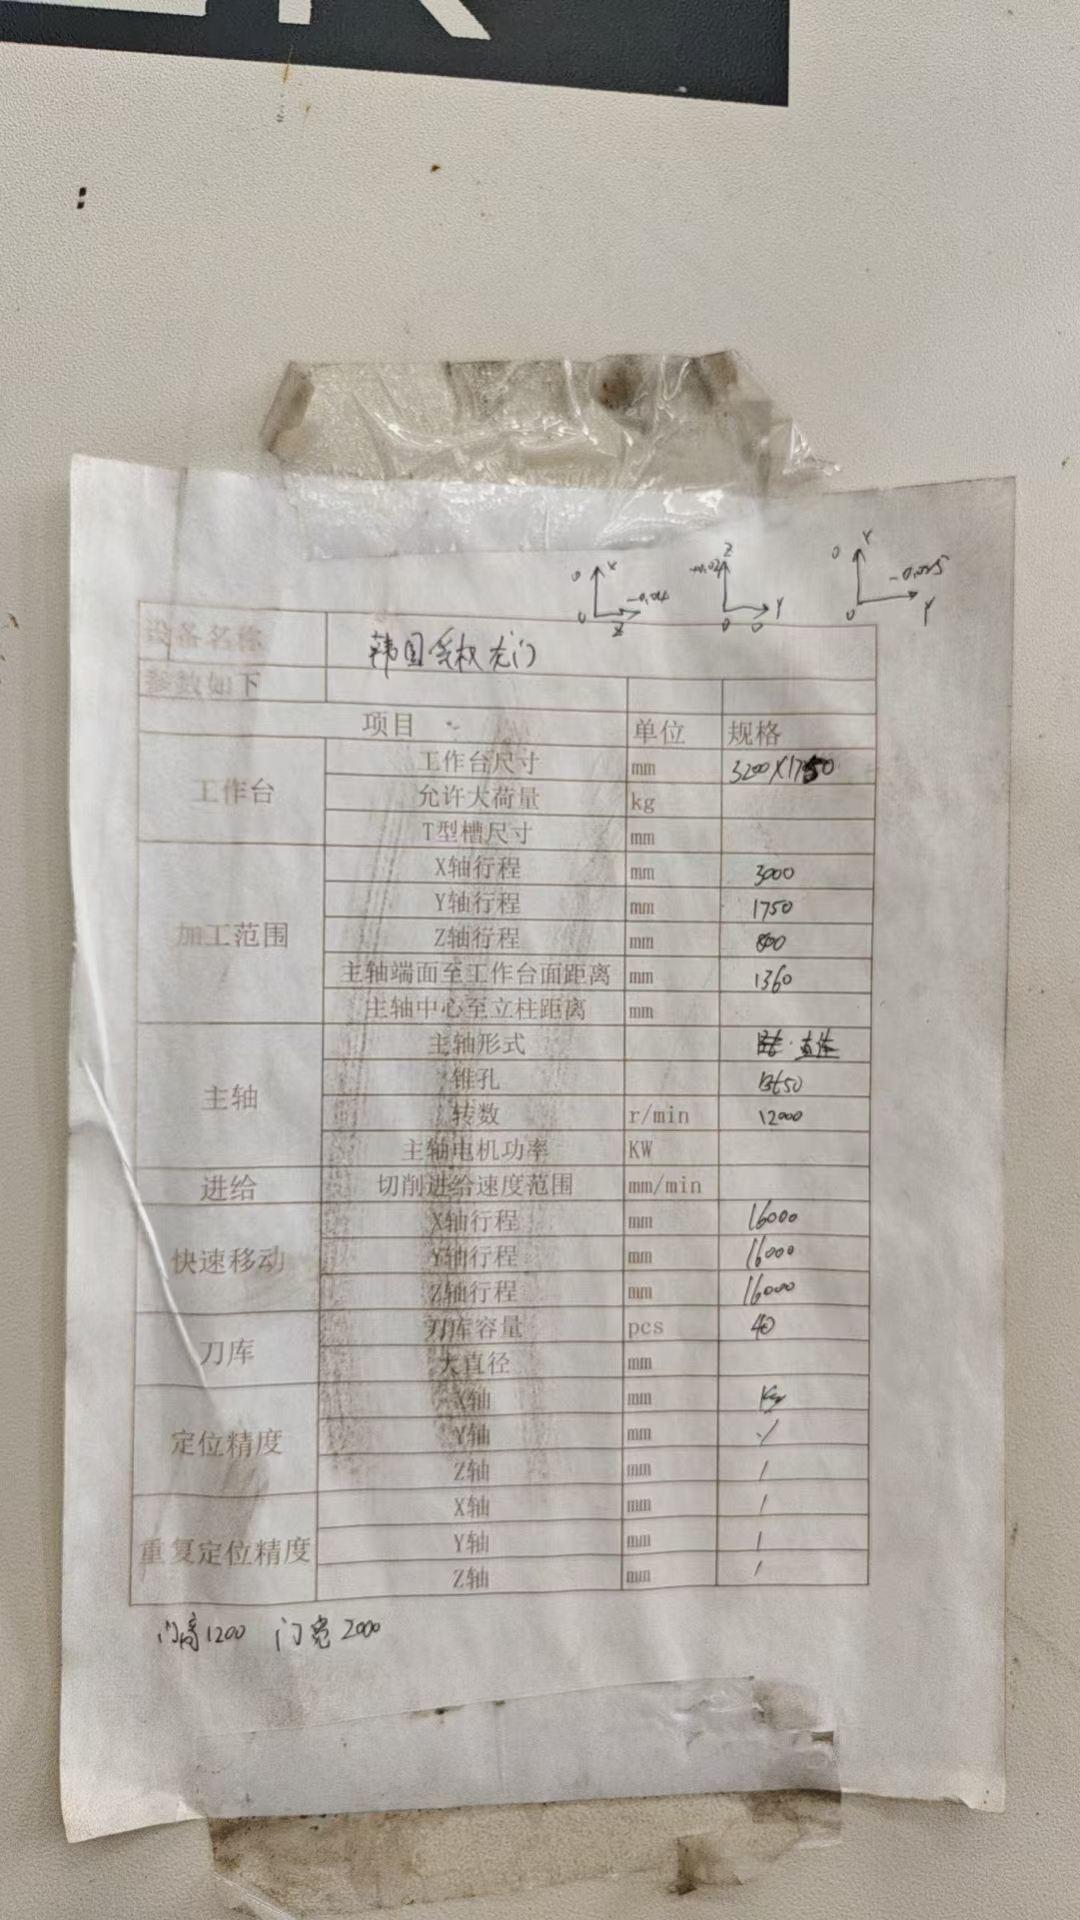 设备名称 韩国 龙门
参数如下
项目 单位 规格
工作台 工作台尺寸 mm 3200X1750
允许大荷量 kg
T型槽尺寸 mm
加工范围 X轴行程 mm 3000
Y轴行程 mm 1750
Z轴行程 mm 800
主轴端面至工作台面距离 mm 1360
主轴中心至立柱距离 mm
主轴 主轴形式
锥孔 Bt50
转数 r/min 12000
主轴电机功率 KW
进给 切削进给速度范围 mm/min
快速移动 X轴行程 mm 16000
Y轴行程 mm 16000
Z轴行程 mm 16000
刀库 刀库容量 pcs 40
大直径 mm
定位精度 X轴 mm
Y轴 mm /
Z轴 mm /
重复定位精度 X轴 mm /
Y轴 mm /
Z轴 mm /
门高1200 门宽2000